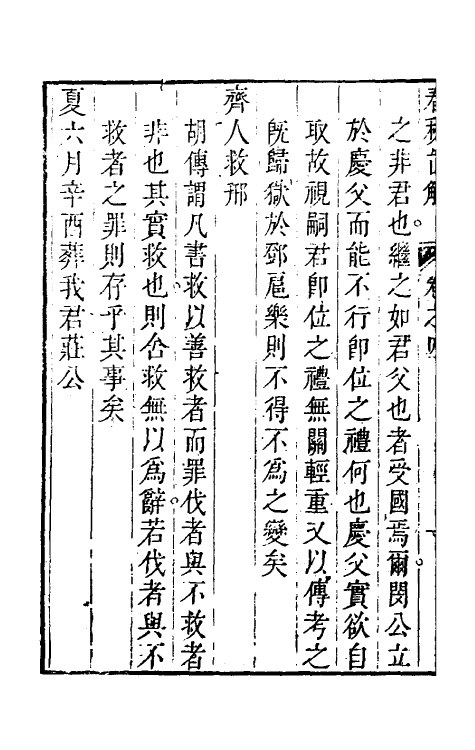 春秋直解 卷之四
之非君也繼之如君父也者受國焉爾閔公立
於慶父而能不行卽位之禮何也慶父實欲自
取故視嗣君卽位之禮無關輕重又以傳考之
旣歸獄於鄧扈樂則不得不爲之變矣
齊人救邢
胡傳謂凡書救以善救者而罪伐者與不救者
非也其實救也則舍救無以爲辭若伐者與不
救者之罪則存乎其事矣
夏六月辛酉葬我君莊公